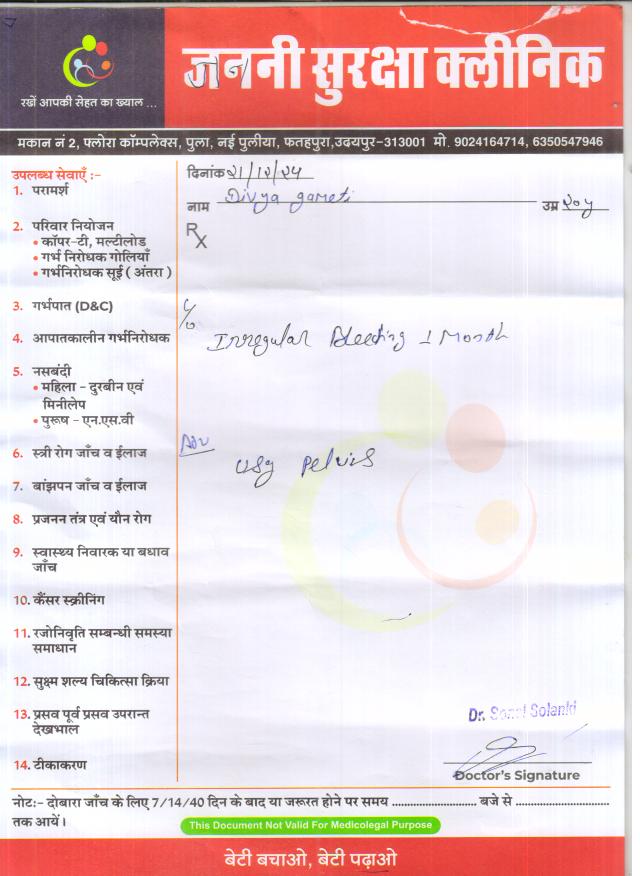 जननी सुरक्षा क्लीनिक
जन
रखें आपकी सेहत का ख्याल ...
मकान नं 2, फ्लोरा कॉम्पलेक्स, पुला, नई पुलीया, फतहपुरा,उदयपुर-313001 मो. 9024164714, 6350547946
उपलब्ध सेवाएँ :-
1. परामर्श
2. परिवार नियोजन
• कॉपर-टी, मल्टीलोड
• गर्भ निरोधक गोलियाँ
• गर्भनिरोधक सूई ( अंतरा )
3. गर्भपात (D&C)
4. आपातकालीन गर्भनिरोधक
5. नसबंदी
• महिला - दुरबीन एवं
मिनीलेप
• पुरूष - एन.एस.वी
6. स्त्री रोग जाँच व ईलाज
7. बांझपन जाँच व ईलाज
8. प्रजनन तंत्र एवं यौन रोग
9. स्वास्थ्य निवारक या बधाव
जाँच
10. कैंसर स्क्रीनिंग
11. रजोनिवृति सम्बन्धी समस्या
समाधान
12. सुक्ष्म शल्य चिकित्सा क्रिया
13. प्रसव पूर्व प्रसव उपरान्त
देखभाल
14. टीकाकरण
दिनांक २१/१२/२४
नाम Divya gameti उम्र २०y
Rx
C/o
Irregular Bleeding 1 Month
Adv
usg pelvis
Dr. Sonal Solanki
Doctor's Signature
नोटः- दोबारा जाँच के लिए 7/14/40 दिन के बाद या जरूरत होने पर समय ........................ बजे से ..........................
तक आयें।
This Document Not Valid For Medicolegal Purpose
बेटी बचाओ, बेटी पढ़ाओ